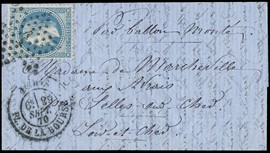 Par Ballon Monté
Madame de Marcheville
aux Abrais
Selles sur Cher
Loir et Cher
PL. DE LA BOURSE
29
SEPT.
70